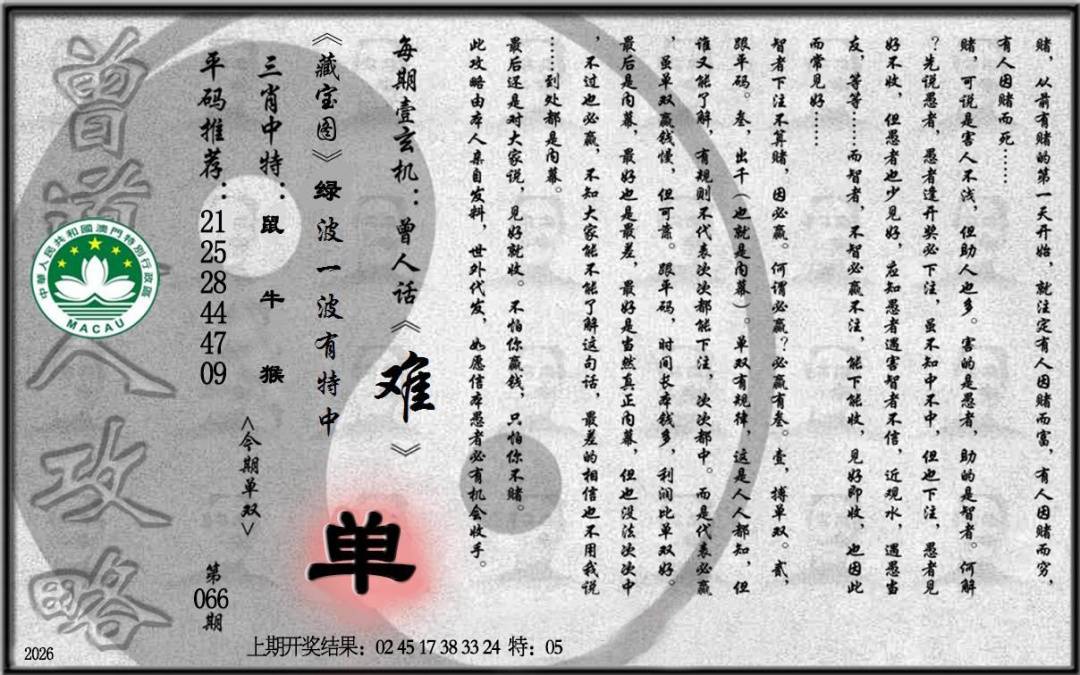 赌，从前有赌的第一天开始，就注定有人因赌而富，有人因赌而穷，
有人因赌而死……
赌，可说是害人不浅，但助人也多。害的是愚者，助的是智者。何解
？先说愚者，愚者逢开奖必下注，虽不知中不中，但也下注，愚者见
好不收，但愚者也少见好，应知愚者遇害智者不信，近观水，遇愚当
友，等等……而智者，不智必赢不注，能下能收，见好即收，也因此
而常见好……
智者下注不算赌，因必赢。何谓必赢？必赢有叁。壹，搏单双。贰，
跟单码。叁，出千（也就是内幕）。单双有规律，这是人人都知，但
谁又能了解，有规则不代表次次都能下注，次次都中。而是代表必赢
，虽单双赢钱慢，但可靠。跟单码，时间长本钱多，利润比单双好。
最后是内幕，最好也是最差，最好是当然真正内幕，但也没法次次中
，不过也必赢，不知大家能不能了解这句话，最差的相信也不用我说
……到处都是内幕。
最后还是对大家说，见好就收。不怕你赢钱，只怕你不赌。
此攻略由本人亲自发料，世外代发，如愿信本愚者必有机会收手。
每期壹玄机：曾人话《难》
《藏宝图》绿波一波有特中
单
三肖中特：鼠 牛 猴
<今期单双>
平码推荐：21 25 28 44 47 09
第066期
曾道人攻略
中华人民共和國澳門特別行政區
MACAU
2026
上期开奖结果：02 45 17 38 33 24 特：05